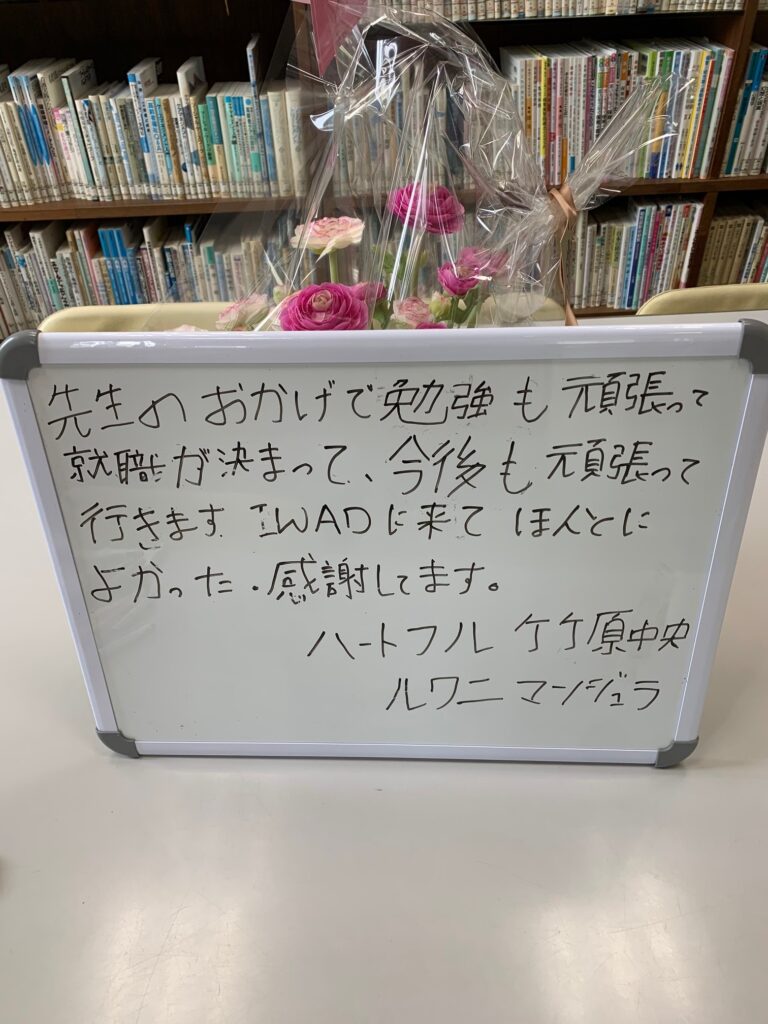 先生のおかげで勉強も頑張って
就職が決まって、今後も頑張って
行きます IWADに来て ほんとに
よかった.感謝してます。
ハートフル 竹原中央
ルワニ マーンジュラ